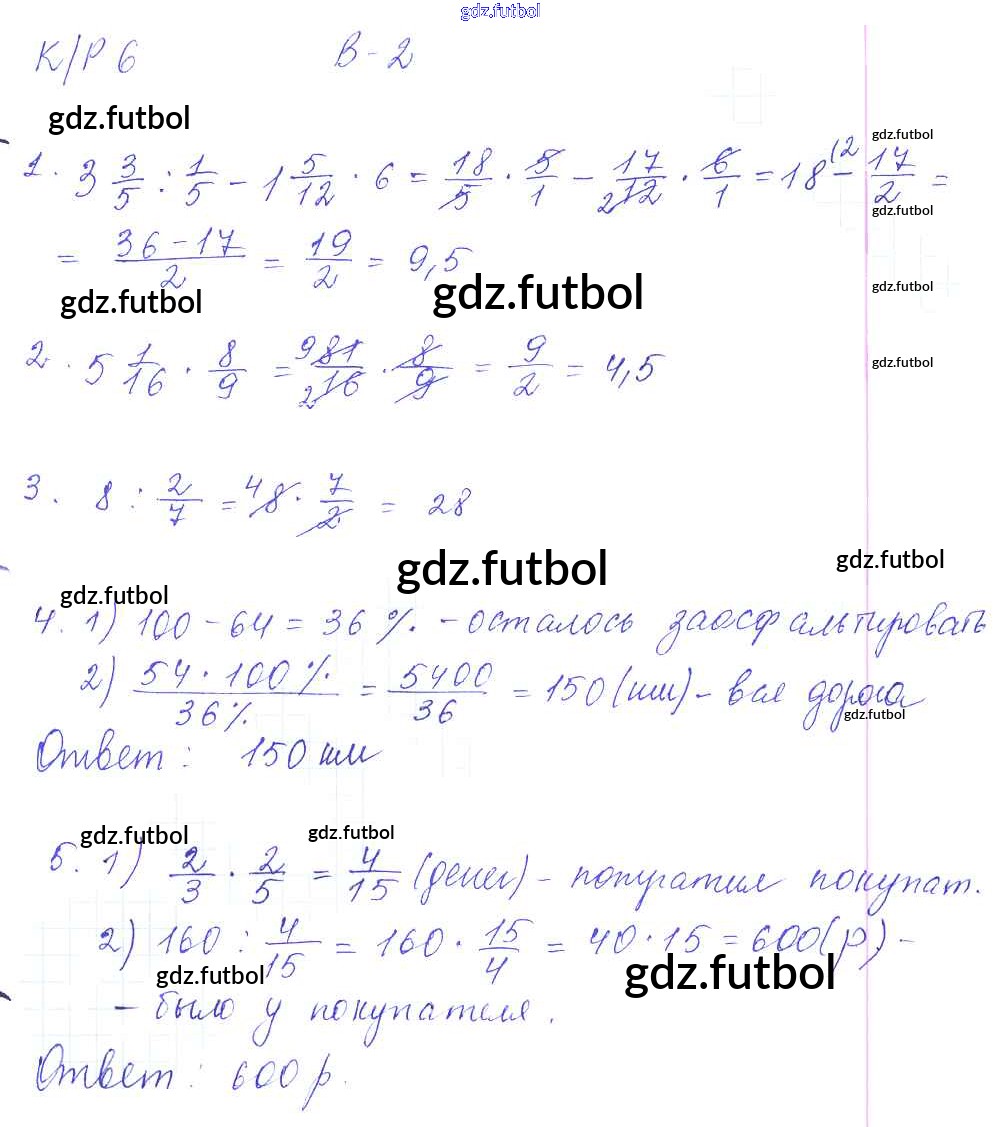 gdz.futbol
К/Р 6 В-2
gdz.futbol
gdz.futbol
1. 3 3/5 : 1/5 - 1 5/12 · 6 = 18/5 · 5/1 - 17/12 · 6/1 = 18 - 17/2 =
gdz.futbol
= 36-17/2 = 19/2 = 9,5
gdz.futbol
gdz.futbol gdz.futbol
2. 5 1/16 · 8/9 = 81/16 · 8/9 = 9/2 = 4,5
gdz.futbol
3. 8 : 2/7 = 8 · 7/2 = 28
gdz.futbol gdz.futbol
gdz.futbol
4. 1) 100 - 64 = 36 % - осталось заасфальтировать
2) 54 · 100 % / 36 % = 5400/36 = 150 (км) - вся дорога
gdz.futbol
Ответ: 150 км
gdz.futbol gdz.futbol
5. 1) 2/3 · 2/5 = 4/15 (денег) - потратил покупат.
2) 160 : 4/15 = 160 · 15/4 = 40 · 15 = 600 (р) -
gdz.futbol gdz.futbol
- было у покупателя.
Ответ: 600 р.